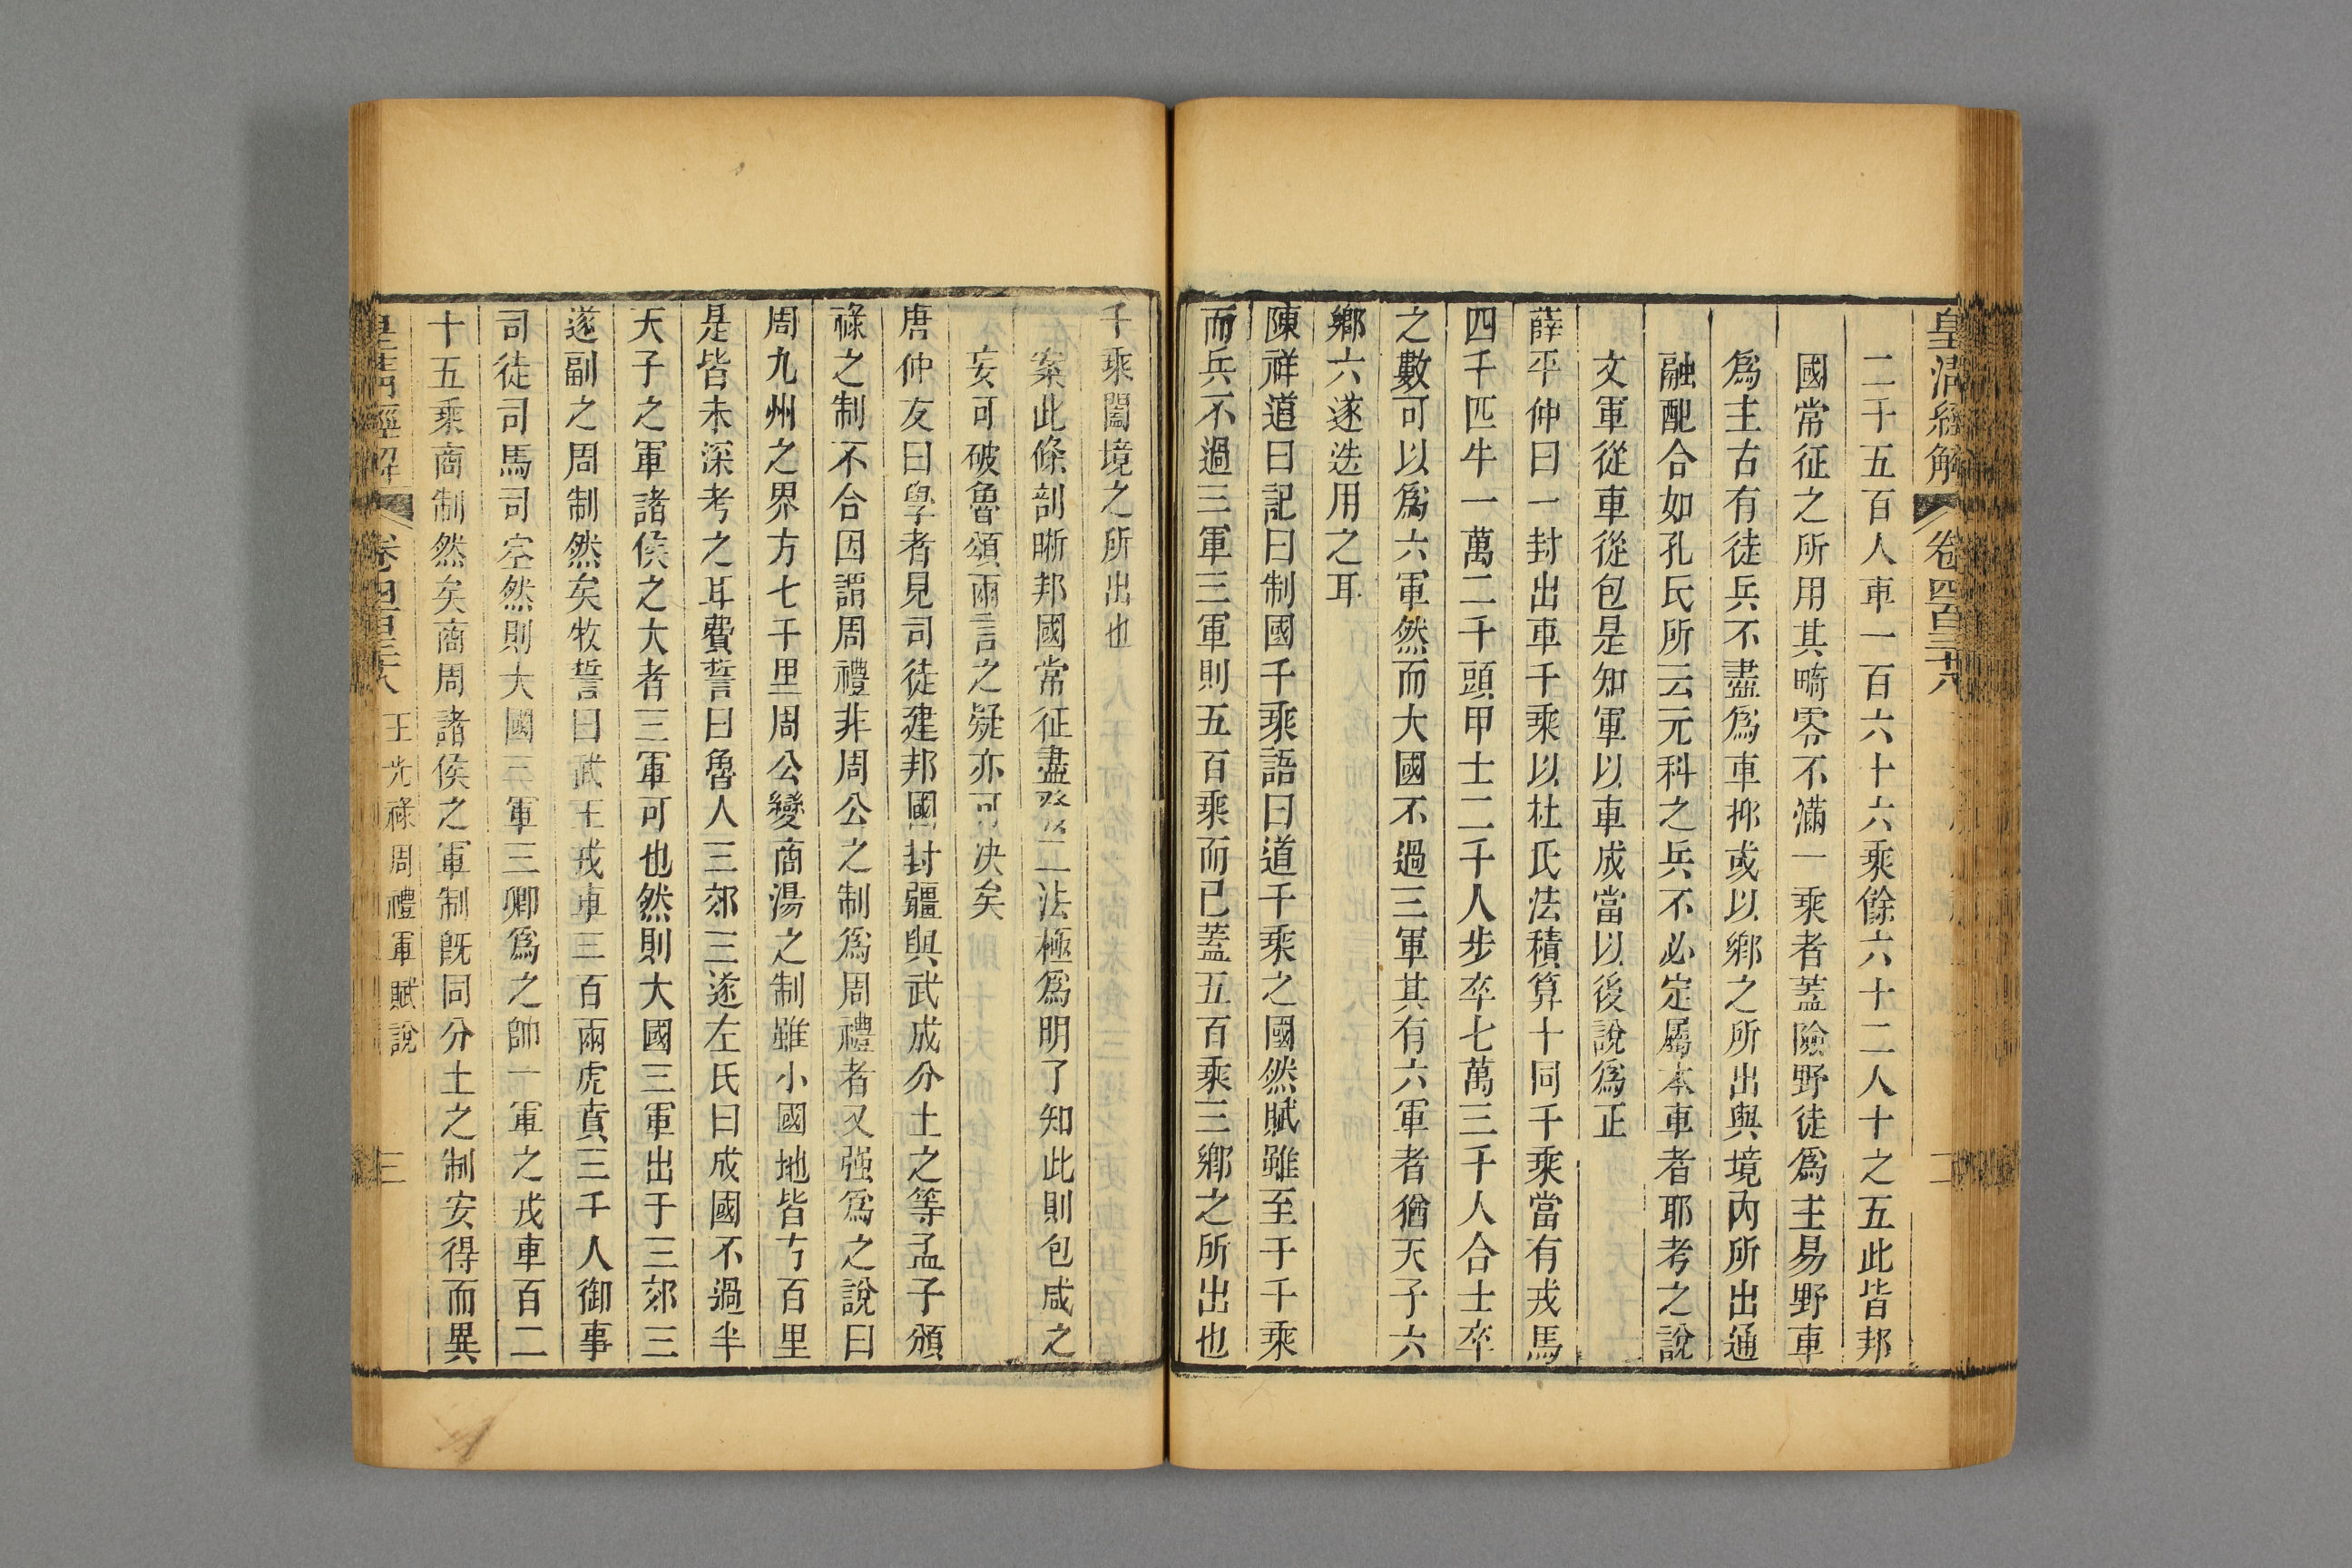 皇清經解
卷四百三十八
二
二千五百人車一百六十六乘餘六十二人十之五此皆邦
國常征之所用其畸零不滿一乘者蓋險野徒爲主易野車
爲主古有徒兵不盡爲車抑或以鄉之所出與境內所出通
融配合如孔氏所云元科之兵不必定屬本車者耶考之說
文軍從車從包是知軍以車成當以後說爲正
薛平仲曰一封出車千乘以杜氏法積算十同千乘當有戎馬
四千匹牛一萬二千頭甲士二千人步卒七萬三千人合士卒
之數可以爲六軍然而大國不過三軍其有六軍者猶天子六
鄉六遂迭用之耳
陳祥道曰記曰制國千乘語曰道千乘之國然賦雖至于千乘
而兵不過三軍三軍則五百乘而已蓋五百乘三鄉之所出也
千乘闔境之所出也
案此條剖晰邦國常征盡發二法極爲明了知此則包咸之
妄可破魯頌兩言之疑亦可決矣
唐仲友曰學者見司徒建邦國封疆與武成分土之等孟子頒
祿之制不合因謂周禮非周公之制爲周禮者又强爲之說曰
周九州之界方七千里周公變商湯之制雖小國地皆方百里
是皆未深考之耳費誓曰魯人三郊三遂左氏曰成國不過半
天子之軍諸侯之大者三軍可也然則大國三軍出于三郊三
遂副之周制然矣牧誓曰武王戎車三百兩虎賁三千人御事
司徒司馬司空然則大國三軍三卿爲之帥一軍之戎車百二
十五乘商制然矣商周諸侯之軍制旣同分土之制安得而異
皇清經解
卷四百三十八
王光祿周禮軍賦說
三